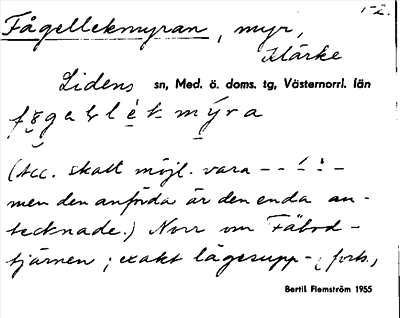 1-2.
Fågellekmyran, myr,
Märke
Lidens sn, Med. ö. doms. tg, Västernorrl. län
(Acc. skall möjl. vara – – ´ : –
men den anförda är den enda an-
tecknade.) Norr om Fäbod-
tjärnen; exakt lägesupp- (forts.)
Bertil Flemström 1955